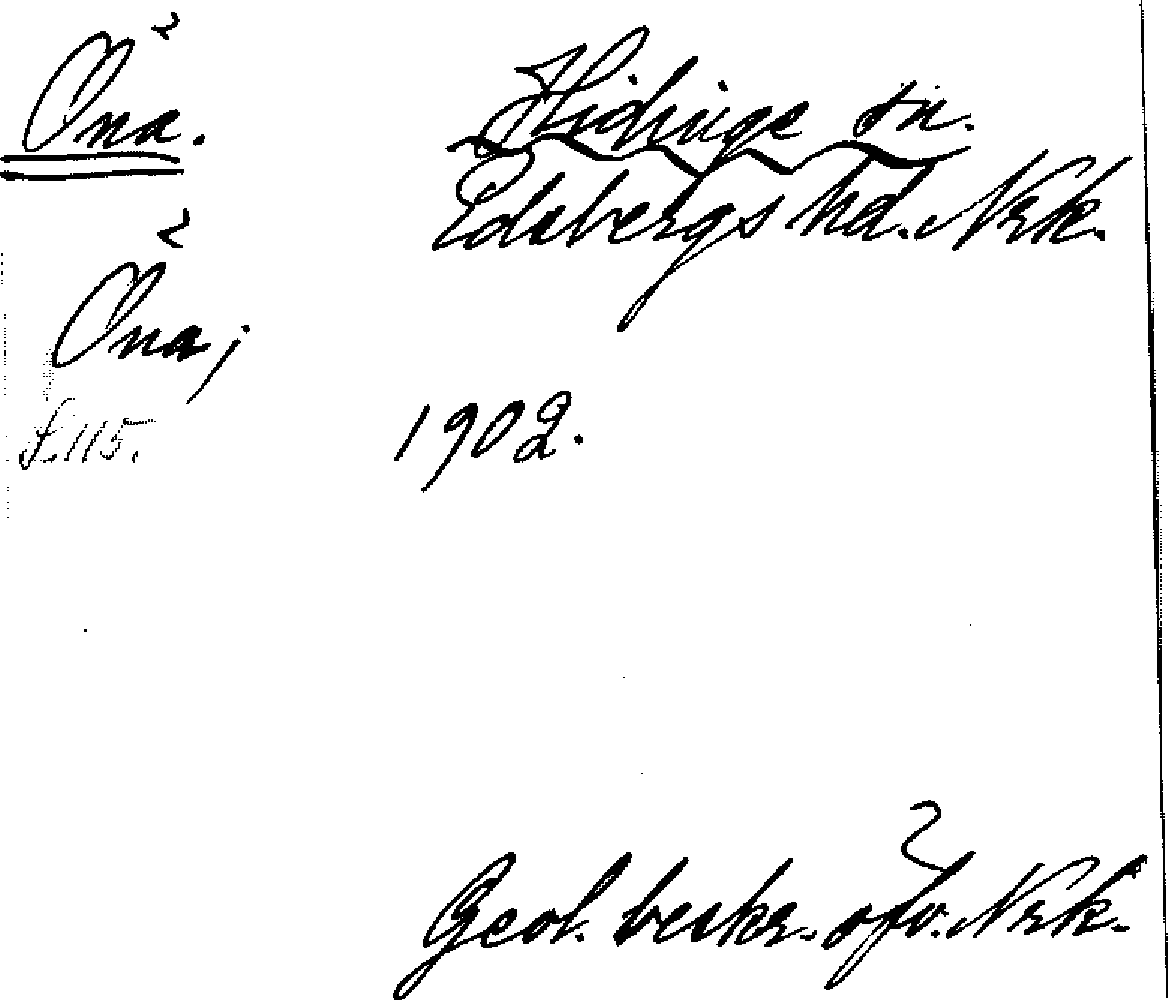 Öna. Hidinge sn.
Edsbergs hd. Nrk.
Öna;
s. 115. 1902.
Geol. beskr. öfv. Nrk.